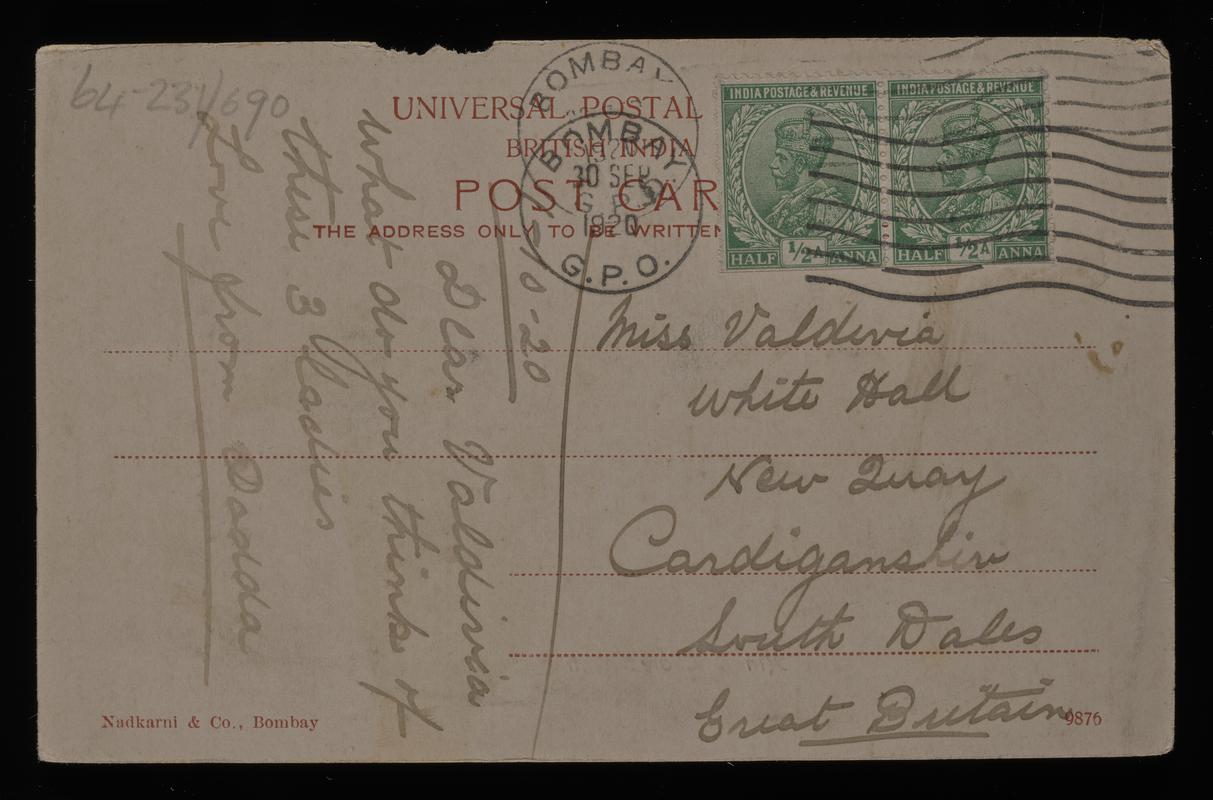 64-231/690
UNIVERSAL POSTAL
BRITISH INDIA
POST CAR
THE ADDRESS ONLY TO BE WRITTEN
BOMBAY
BOMBAY
30 SEP
1920
G.P.O.
INDIA POSTAGE & REVENUE
HALF 1/2A ANNA
INDIA POSTAGE & REVENUE
HALF 1/2A ANNA
-10-20
Dear Valdivia
What do you think of
these 3 Ladies
Love from Dadda
Miss Valdivia
White Hall
New Quay
Cardiganshire
South Wales
Great Britain
Nadkarni & Co., Bombay
9876